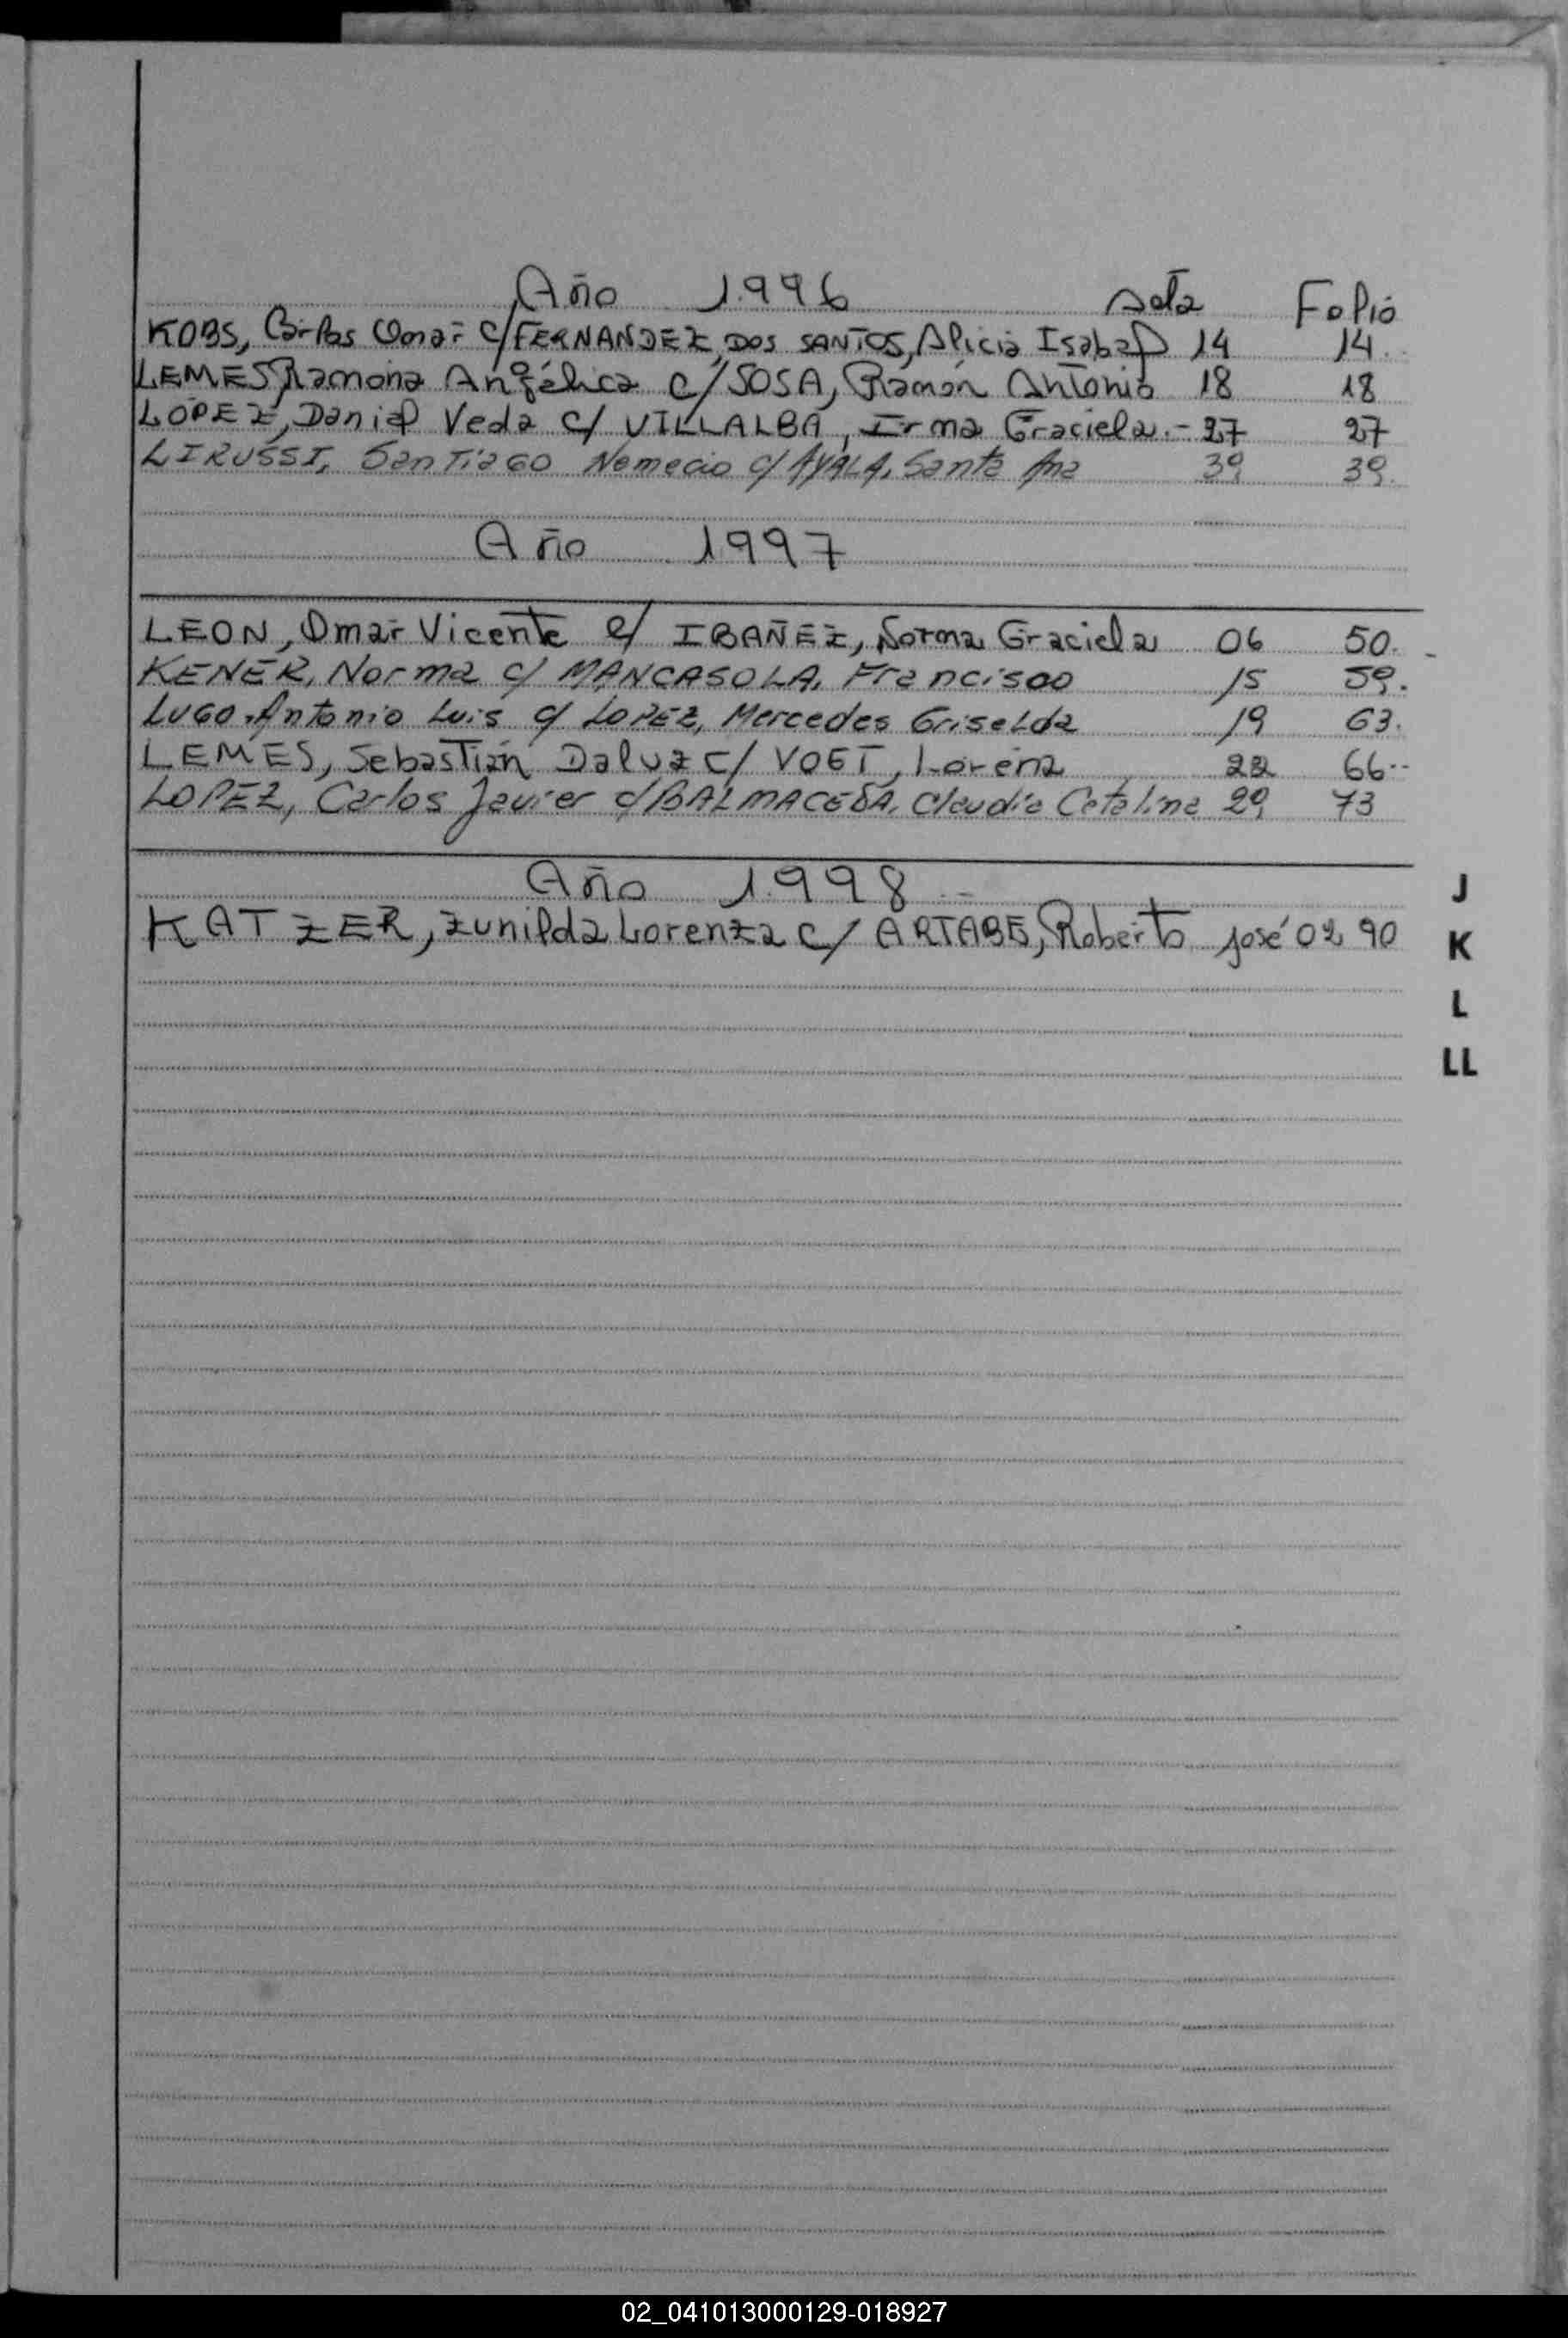 Año 1.996 Acta Folio
KOBS, Carlos Omar c/FERNANDEZ DOS SANTOS, Alicia Isabel 14 14.
LEMES, Ramona Angélica c/SOSA, Ramón Antonio 18 18
LOPEZ, Daniel Veda c/ VILLALBA, Irma Graciela.- 27 27
LIRUSSI, Santiago Nemecio c/ AYALA, Santa Ana 39 39.
Año 1997
LEON, Omar Vicente c/ IBAÑEZ, Norma Graciela 06 50.-
KENER, Norma c/ MANCASOLA, Francisco 15 59.
LUGO, Antonio Luis c/ LOPEZ, Mercedes Griselda 19 63.
LEMES, Sebastián Daluz c/ VOGT, Lorena 22 66..
LOPEZ, Carlos Javier c/BALMACEDA, Claudia Catalina 29 73
Año 1.998
J
KATZER, Zunilda Lorenza c/ ARTABE, Roberto José 02 90
K
L
LL
02_041013000129-018927